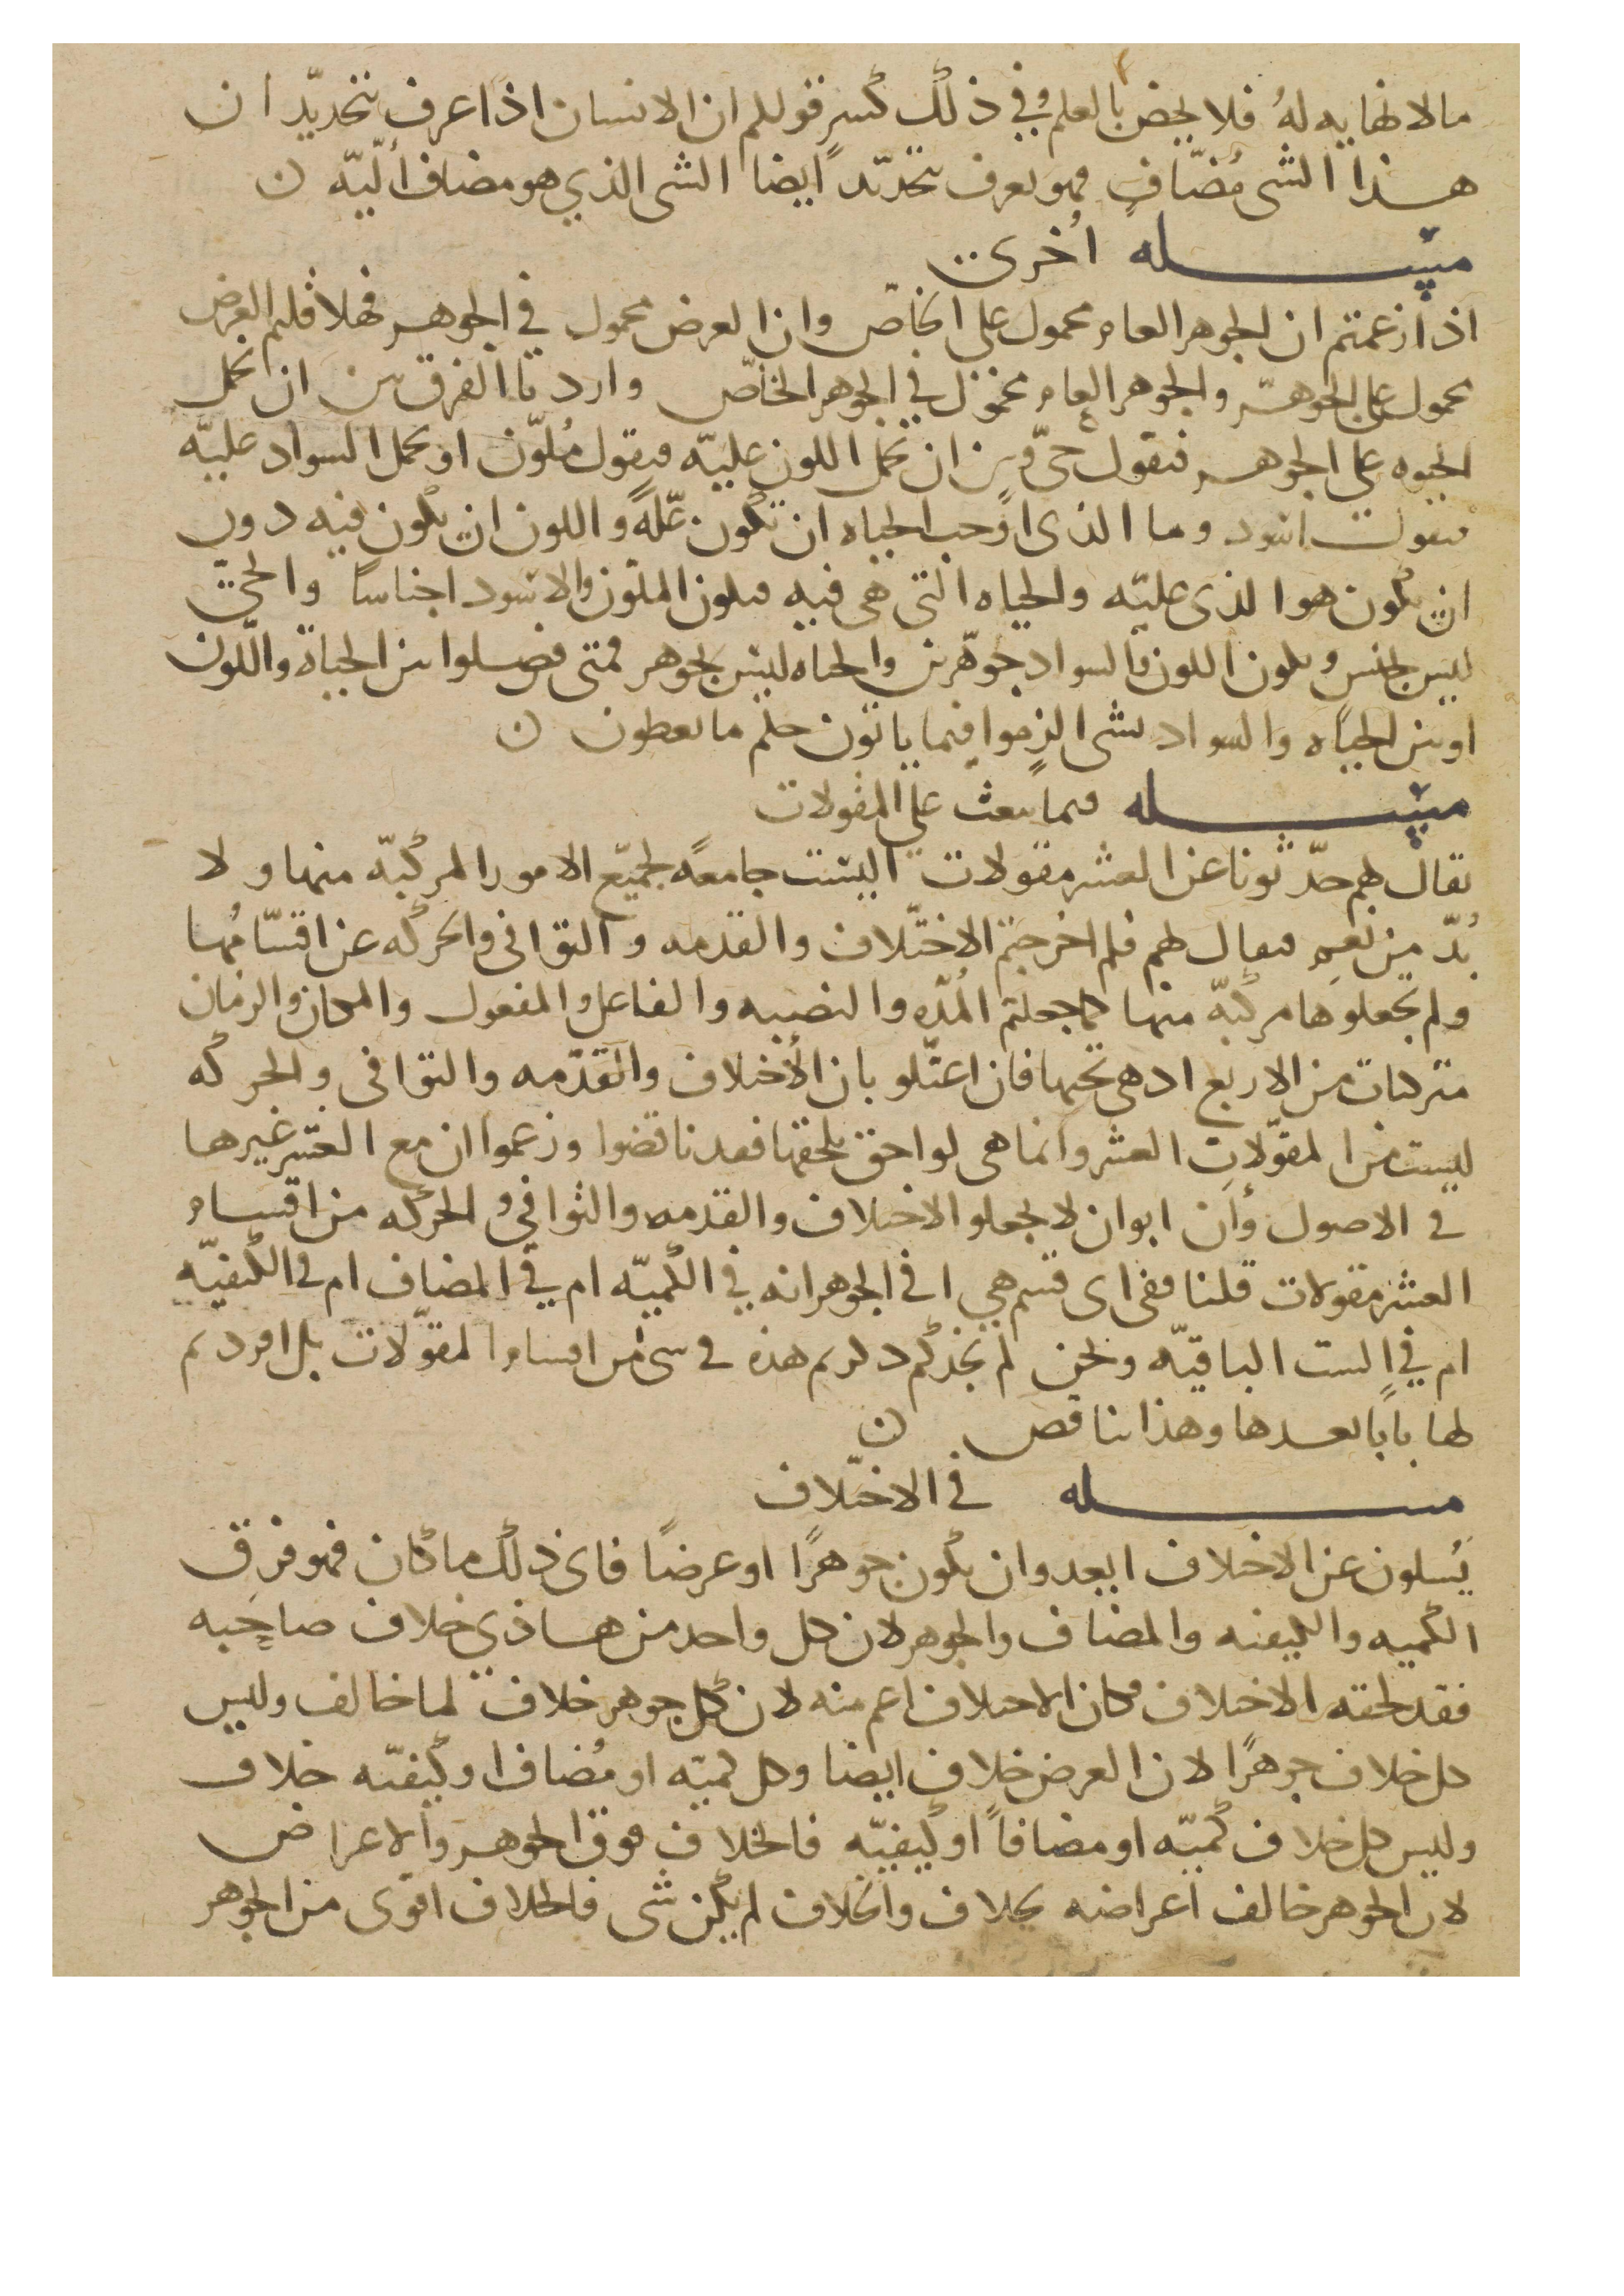 مالا نهايه لهُ فلا يحض بالعلم وفي ذلك كسر قولكم ان الانسان اذا عرف بتحديد ان
هذا الشي مُضاف فهو يعرف بتحديد ايضا الشي الذي هو مضاف اليه ن
مسله اُخرى
اذا زعمتم ان الجوهر العام محمول على الخاص وان العرض محمول في الجوهر فهلا قلتم العرض
محمول على الجوهر والجوهر العام محمول في الجوهر الخاص واردنا الفرق بين ان تحمل
الحيوه على الجوهر فتقول حيّ وبين ان تحمل اللون عليه فتقول مُلوّن او تحمل السواد عليه
فتقول اسود وما الذى اوجب الحياه ان تكون علّةً واللون ان يكون فيه دون
ان يكون هو الذى عليه والحياه التى هى فيه فيكون الملون والاسود اجناسا والحى
ليس بجنس ويكون اللون والسواد جوهرين والحياه ليس بجوهر فمتى فصلوا بين الحياة واللون
او بين الحياه والسواد بشي الزموا فيما ياتون حكم ما يعطون ن
مسله فيما يبعث على المقولات
يقال لهم حدّثونا عن العشر مقولات اليست جامعةً لجميع الامور المركبه منها ولا
بُدّ من نعم فيقال لهم فلم اخرجتم الاختلاف والقدمه والتوافى والحركه عن اقسامُها
ولم تجعلوها مركبه منها كما جعلتم المُدّه والنصبه والفاعل والمفعول والمكان والزمان
متركبات من الاربع اد هى تحتها فان اعتلو بان الاختلاف والقدمه والتوافى والحركه
ليست من المقولات العشر وانما هى لواحق تلحقها فقد ناقضوا وزعموا ان مع العشر غيرها
في الاصول وأن ابوا ان لا يجعلو الاختلاف والقدمه والتوافي والحركه من اقسام
العشر مقولات قلنا ففى اى قسم هي افى الجوهر انه في الكميّه ام في المضاف ام في الكيفيّه
ام في الست الباقيّه ونحن لم نجدكم ذكرتم هذه في شى من اقسام المقولات بل افردتم
لها بابًا بعدها وهذا تناقص ن
مسله في الاختلاف
يُسلون عن الاختلاف ايعدوان يكون جوهرًا او عرضًا فاى ذلك ما كان فهو فرق
الكميه والكيفيه والمضاف والجوهر لان كل واحد من هاذى خلاف صاحبه
فقد لحقه الاختلاف وكان الاختلاف اعم منه لان كل جوهر خلاف لما خالف وليس
كل خلاف جوهرًا لان العرض خلاف ايضا وكل كميّه او مُضاف او كيفيّه خلاف
وليس كل خلاف كميّه او مضافاً او كيفيّه فالخلاف فوق الجوهر والاعراض
لان الجوهر خالف اعراضه بخلاف والخلاف لم يكن شى فالخلاف اقوى من الجوهر